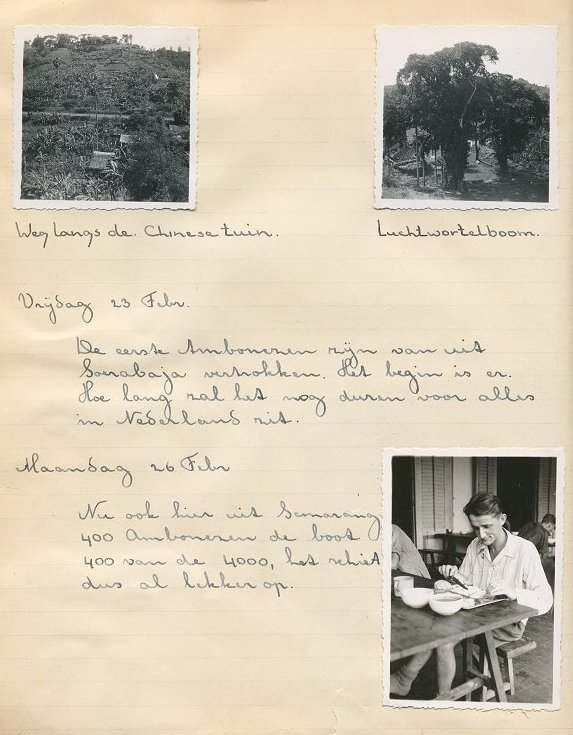 Weg langs de Chinese tuin.
Luchtwortelboom.
Vrijdag 23 Febr.
De eerste Ambonezen zijn van uit
Soerabaja vertrokken. Het begin is er.
Hoe lang zal het nog duren voor alles
in Nederland zit.
Maandag 26 Febr
Nu ook hier uit Semarang
400 Ambonezen de boot
400 van de 4000, het schiet
dus al lekker op.